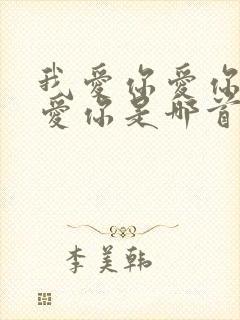 我爱你爱你
爱你是那首
李美韩